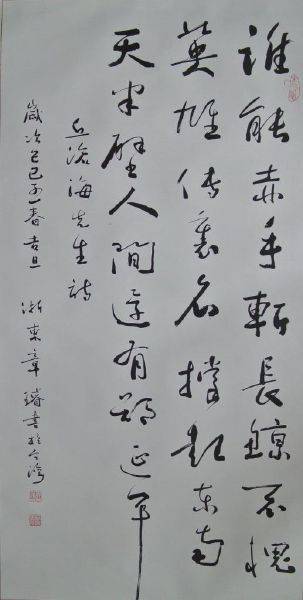 誰能赤手斬長鯨不愧
英雄傳裏名撐起東南
天半壁人間還有鄭延平
丘滄海先生詩
歲次己巳春吉旦 浙東章書於台灣